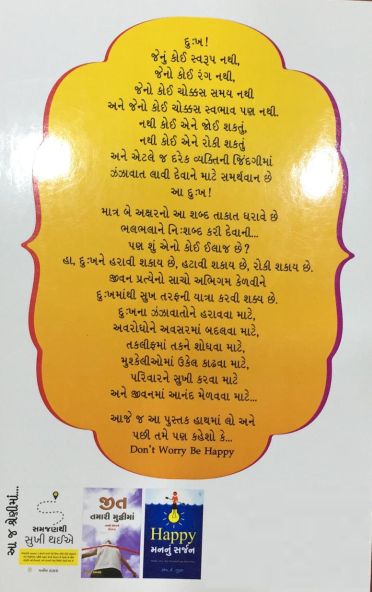 દુઃખ!
જેનું કોઈ સ્વરૂપ નથી,
જેનો કોઈ રંગ નથી,
જેનો કોઈ ચોક્કસ સમય નથી
અને જેનો કોઈ ચોક્કસ સ્વભાવ પણ નથી.
નથી કોઈ એને જોઈ શકતું,
નથી કોઈ એને રોકી શકતું
અને એટલે જ દરેક વ્યક્તિની જિંદગીમાં
ઝંઝાવાત લાવી દેવાને માટે સમર્થવાન છે
આ દુઃખ!
માત્ર બે અક્ષરનો આ શબ્દ તાકાત ધરાવે છે
ભલભલાને નિઃશબ્દ કરી દેવાની...
પણ શું એનો કોઈ ઈલાજ છે?
હા, દુઃખને હરાવી શકાય છે, હટાવી શકાય છે, રોકી શકાય છે.
જીવન પ્રત્યેનો સાચો અભિગમ કેળવીને
દુઃખમાંથી સુખ તરફની યાત્રા કરવી શક્ય છે.
દુઃખના ઝંઝાવાતોને હરાવવા માટે,
અવરોધોને અવસરમાં બદલવા માટે,
તકલીફમાં તકને શોધવા માટે,
મુશ્કેલીઓમાં ઉકેલ કાઢવા માટે,
પરિવારને સુખી કરવા માટે
અને જીવનમાં આનંદ મેળવવા માટે...
આજે જ આ પુસ્તક હાથમાં લો અને
પછી તમે પણ કહેશો કે...
Don't Worry Be Happy
આ જ શ્રેણીમાં...
સમજણથી
સુખી થઈએ
જીત
તમારી મુઠ્ઠીમાં
Happy
મનનું સર્જન